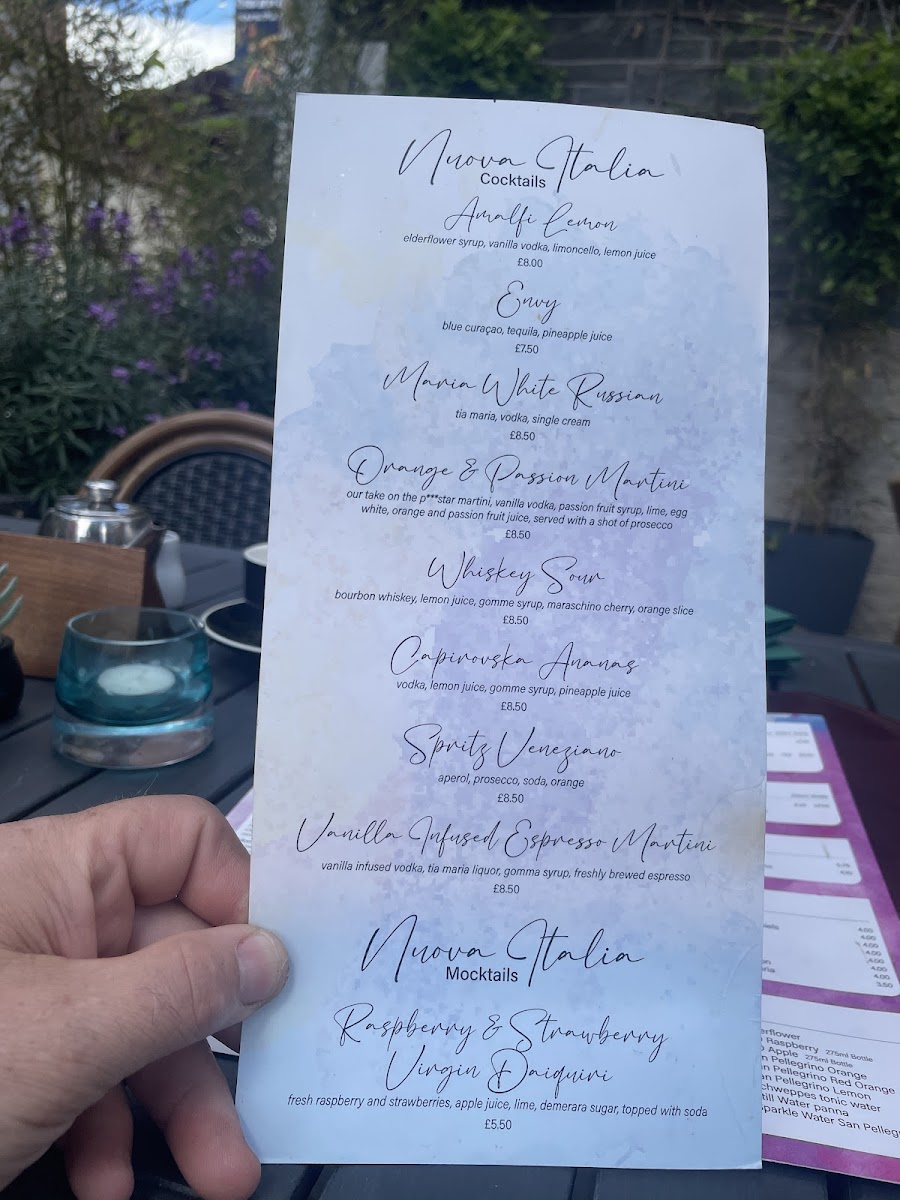 Nuova Italia
Cocktails
Amalfi Lemon
elderflower syrup, vanilla vodka, limoncello, lemon juice
£8.00
Envy
blue curaçao, tequila, pineapple juice
£7.50
Maria White Russian
tia maria, vodka, single cream
£8.50
Orange & Passion Martini
our take on the p***star martini, vanilla vodka, passion fruit syrup, lime, egg
white, orange and passion fruit juice, served with a shot of prosecco
£8.50
Whiskey Sour
bourbon whiskey, lemon juice, gomme syrup, maraschino cherry, orange slice
£8.50
Capirovska Ananas
vodka, lemon juice, gomme syrup, pineapple juice
£8.50
Spritz Veneziano
aperol, prosecco, soda, orange
£8.50
Vanilla Infused Espresso Martini
vanilla infused vodka, tia maria liquor, gomma syrup, freshly brewed espresso
£8.50
Nuova Italia
Mocktails
Raspberry & Strawberry
Virgin Daiquiri
fresh raspberry and strawberries, apple juice, lime, demerara sugar, topped with soda
£5.50
4.00
4.00
4.00
4.00
4.00
3.50
Raspberry 275ml Bottle
Apple 275ml Bottle
Pellegrino Orange
Pellegrino Red Orange
Pellegrino Lemon
chweppes tonic water
till Water panna
parkle Water San Pelleg